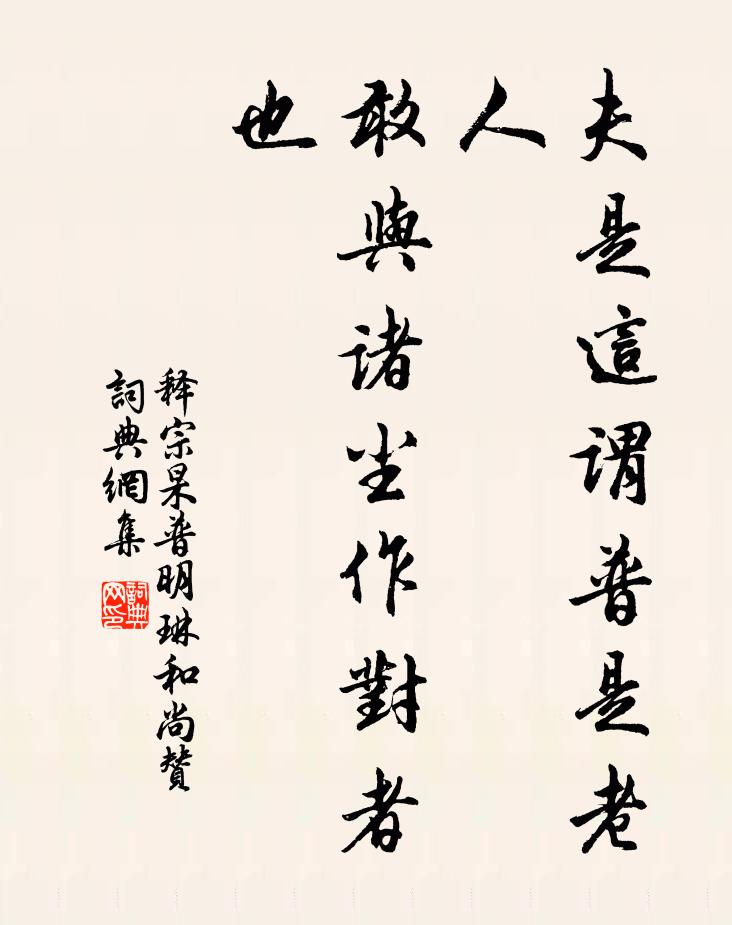 夫是這謂普是老
人
敢與諸尘作對者
也
释宗杲普明琳和尚贊
詞典網集
詞典网印